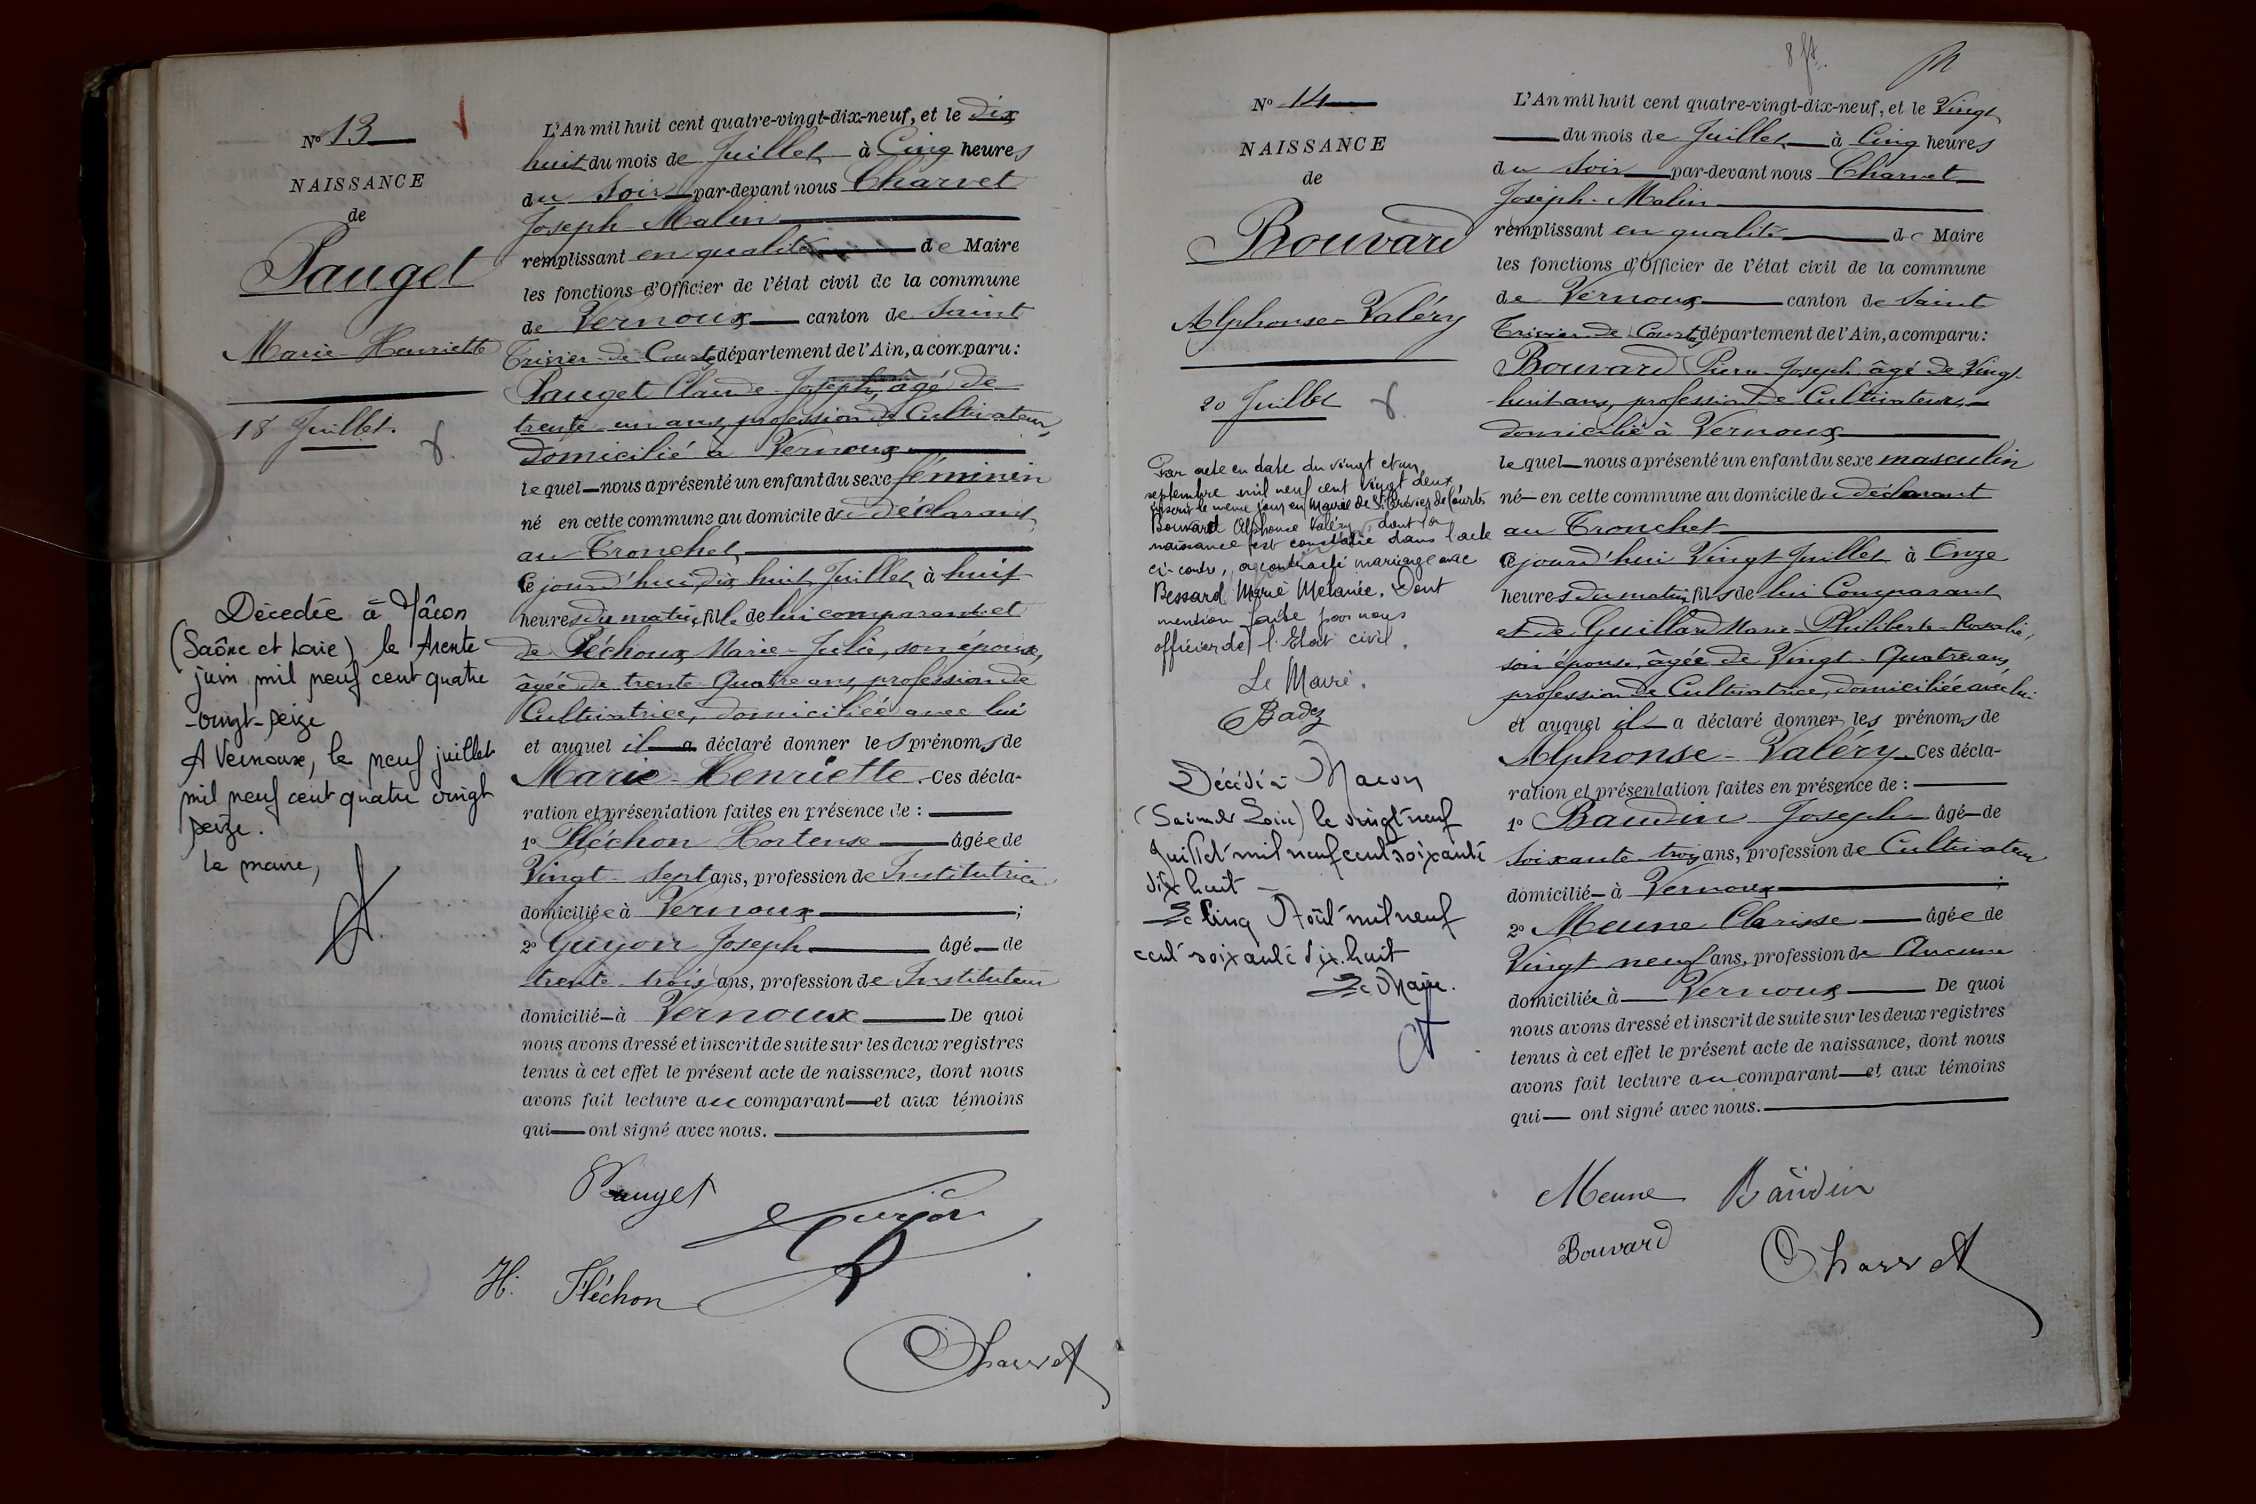 Nº 13
NAISSANCE
de
Pauget
Marie-Henriette
18 Juillet.
Décédée à Mâcon
(Saône et Loire) le trente
juin mil neuf cent quatre
-vingt-seize
A Vernoux, le neuf juillet
mil neuf cent quatre vingt
seize.
Le maire,
L'An mil huit cent quatre-vingt-dix-neuf, et le Dix
huit du mois de Juillet à Cinq heures
du Soir par-devant nous Charvet
Joseph Malin
remplissant en qualité de Maire
les fonctions d'Officier de l'état civil de la commune
de Vernoux canton de Saint
Trivier-de-Courtes département de l'Ain, a comparu :
Pauget Claude-Joseph, âgé de
trente-un ans, profession de Cultivateur,
domicilié à Vernoux
lequel nous a présenté un enfant du sexe féminin
né en cette commune au domicile du déclarant
au Tronchet
Ce jourd'hui dix huit Juillet à huit
heures du matin, fille de lui comparant et
de Péchoux Marie-Julie, son épouse,
âgée de trente-Quatre ans, profession de
Cultivatrice, domiciliée avec lui
et auquel il a déclaré donner les prénoms de
Marie-Henriette. Ces décla-
ration et présentation faites en présence de :
1º Fléchon Hortense âgée de
Vingt-Sept ans, profession de Institutrice
domiciliée à Vernoux ;
2º Guyon Joseph âgé de
trente-trois ans, profession de Instituteur
domicilié à Vernoux De quoi
nous avons dressé et inscrit de suite sur les deux registres
tenus à cet effet le présent acte de naissance, dont nous
avons fait lecture au comparant et aux témoins
qui ont signé avec nous.
Pauget
Guyon
H. Fléchon
Charvet
8 ft.
Nº 14
NAISSANCE
de
Bouvard
Alphonse-Valéry
20 Juillet
Par acte en date du vingt et un
septembre mil neuf cent vingt deux
inscrit le même jour en Mairie de St Trivier de Courtes
Bouvard Alphonse Valéry, dont la
naissance est constatée dans l'acte
ci-contre, a contracté mariage avec
Bessard Marie Mélanie. Dont
mention faite par nous
officier de l'Etat civil.
Le Maire.
Badez
Décédé à Macon
(Saône et Loire) le vingt neuf
Juillet mil neuf cent soixante
dix huit
Le Cinq Août mil neuf
cent soixante dix huit
Le Maire.
L'An mil huit cent quatre-vingt-dix-neuf, et le Vingt
du mois de Juillet à Cinq heures
du Soir par-devant nous Charvet
Joseph-Malin
remplissant en qualité de Maire
les fonctions d'Officier de l'état civil de la commune
de Vernoux canton de Saint
Trivier de Courtes département de l'Ain, a comparu :
Bouvard Pierre-Joseph âgé de Vingt-
huit ans, profession de Cultivateur,
domicilié à Vernoux
lequel nous a présenté un enfant du sexe masculin
né en cette commune au domicile du déclarant
au Tronchet
Ce jourd'hui Vingt Juillet à Onze
heures du matin, fils de lui Comparant
et de Guillard Marie-Philiberte-Rosalie,
son épouse, âgée de Vingt-Quatre ans,
profession de Cultivatrice, domiciliée avec lui
et auquel il a déclaré donner les prénoms de
Alphonse-Valéry. Ces décla-
ration et présentation faites en présence de :
1º Baudin Joseph âgé de
Soixante-trois ans, profession de Cultivateur
domicilié à Vernoux ;
2º Meune Clarisse âgée de
Vingt neuf ans, profession de Aucune
domiciliée à Vernoux De quoi
nous avons dressé et inscrit de suite sur les deux registres
tenus à cet effet le présent acte de naissance, dont nous
avons fait lecture au comparant et aux témoins
qui ont signé avec nous.
Meune Baudin
Bouvard Charvet